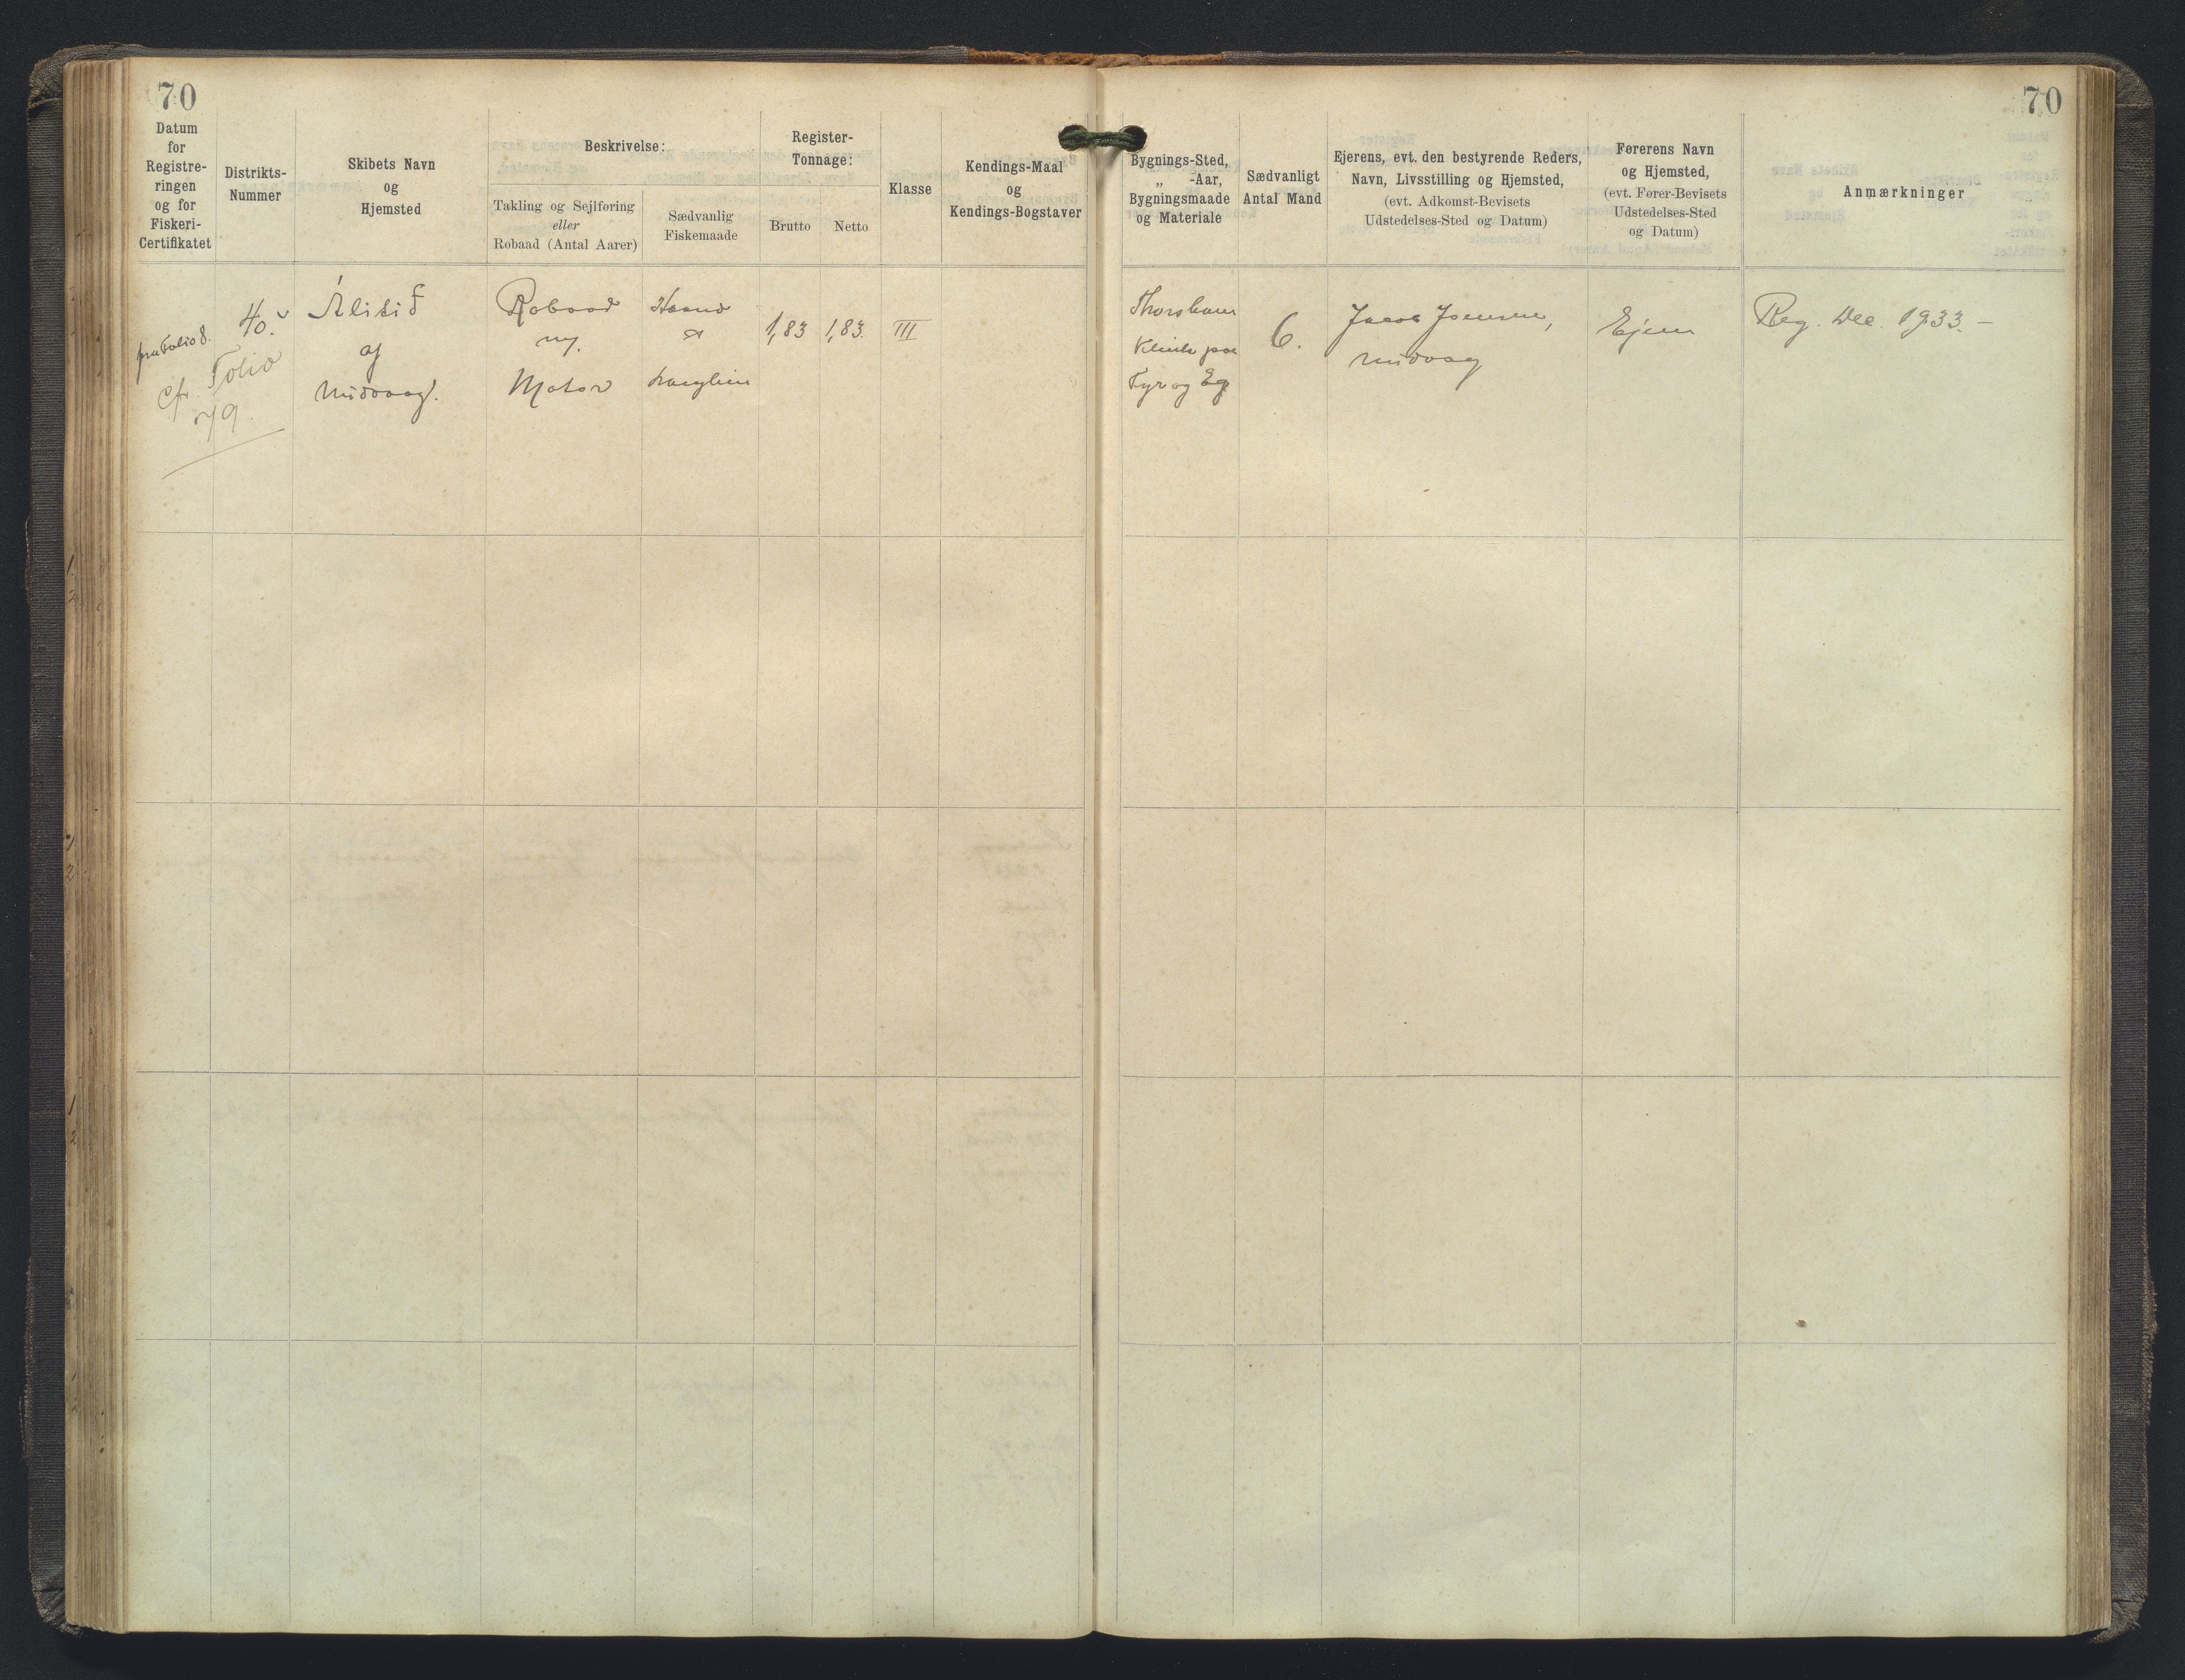 70
70
Datum
for
Registre-
ringen
og for
Fiskeri-
Certifikatet
Distrikts-
Nummer
Skibets Navn
og
Hjemsted
Beskrivelse:
Takling og Sejlføring
eller
Robaad (Antal Aarer)
Sædvanlig
Fiskemaade
Register-
Tonnage:
Brutto
Netto
Klasse
Kendings-Maal
og
Kendings-Bogstaver
Bygnings-Sted,
„ -Aar,
Bygningsmaade
og Materiale
Sædvanligt
Antal Mand
Ejerens, evt. den bestyrende Reders,
Navn, Livsstilling og Hjemsted,
(evt. Adkomst-Bevisets
Udstedelses-Sted og Datum)
Førerens Navn
og Hjemsted,
(evt. Fører-Bevisets
Udstedelses-Sted
og Datum)
Anmærkninger
fra Folio 8.
cfr. Folio
79.
40.
af
Midvaag.
Robaad
m/
Motor
Haand
&
Langline
1,83
1,83.
III
Thorshavn
Klink paa
Fyr og Eg
6.
Jacob Joensen,
Midvaag
Ejeren
Reg. Dec. 1933. –